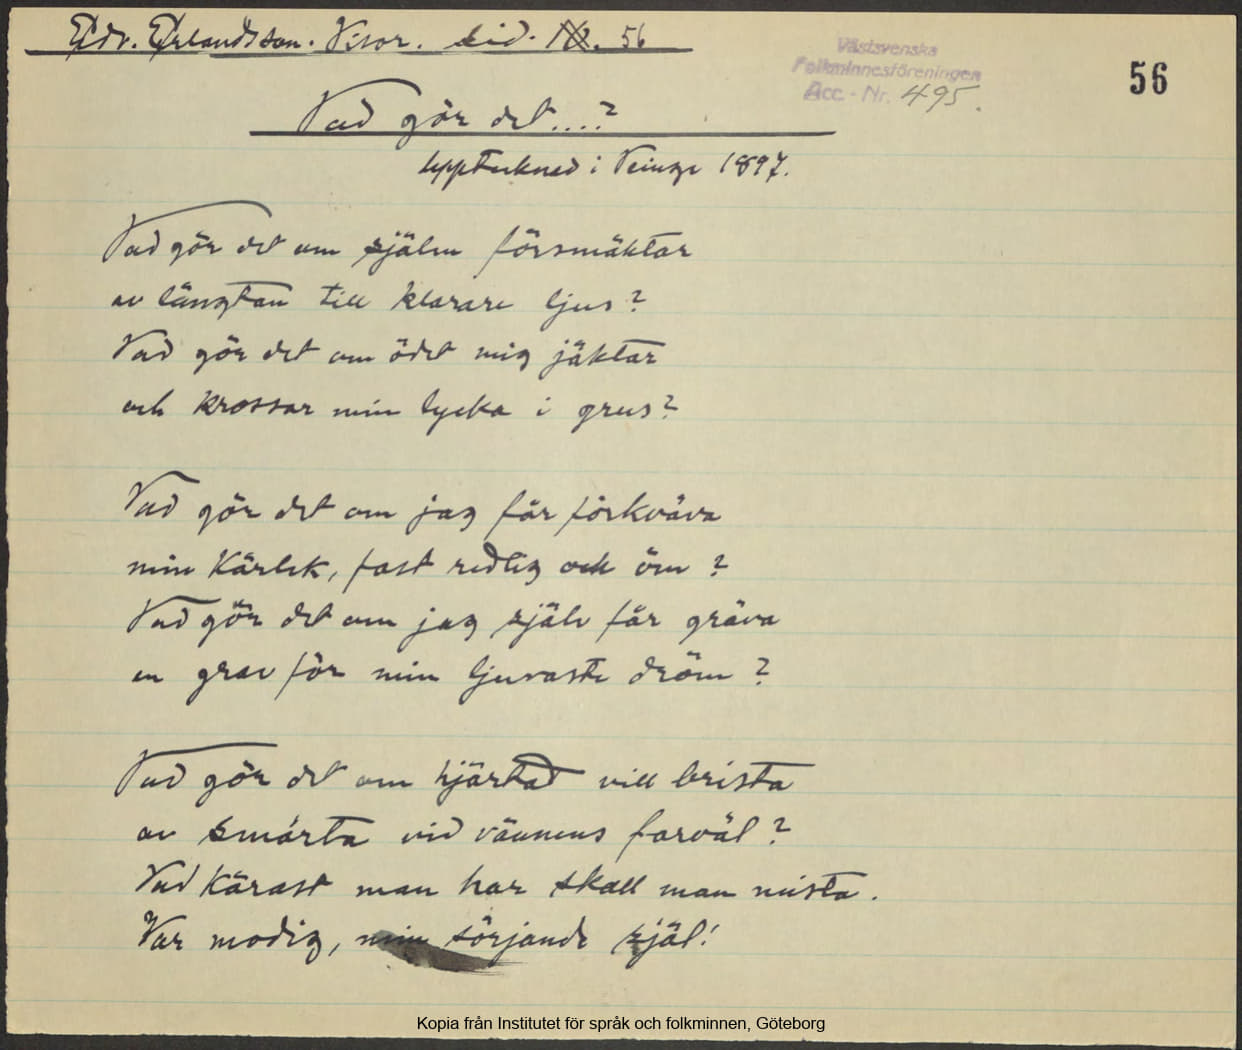 Edv. Erlandsson. Visor. sid. 56
Västsvenska
Folkminnesföreningen
Acc. - Nr. 495.
56
Vad gör det....?
Upptecknad i Veinge 1897.
Vad gör det om själen försmäktar
av längtan till klarare ljus?
Vad gör det om ödet mig jäktar
och krossar min lycka i grus?
Vad gör det om jag får förkväva
min kärlek, fast redlig och öm?
Vad gör det om jag själv får gräva
en grav för min ljuvaste dröm?
Vad gör det om hjärtat vill brista
av smärta vid vännens farväl?
Vad kärast man har skall man mista.
Var modig, min sörjande själ!
Kopia från Institutet för språk och folkminnen, Göteborg